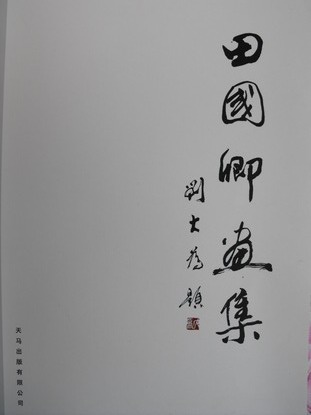 田國卿畫集
劉大為題
天马出版有限公司